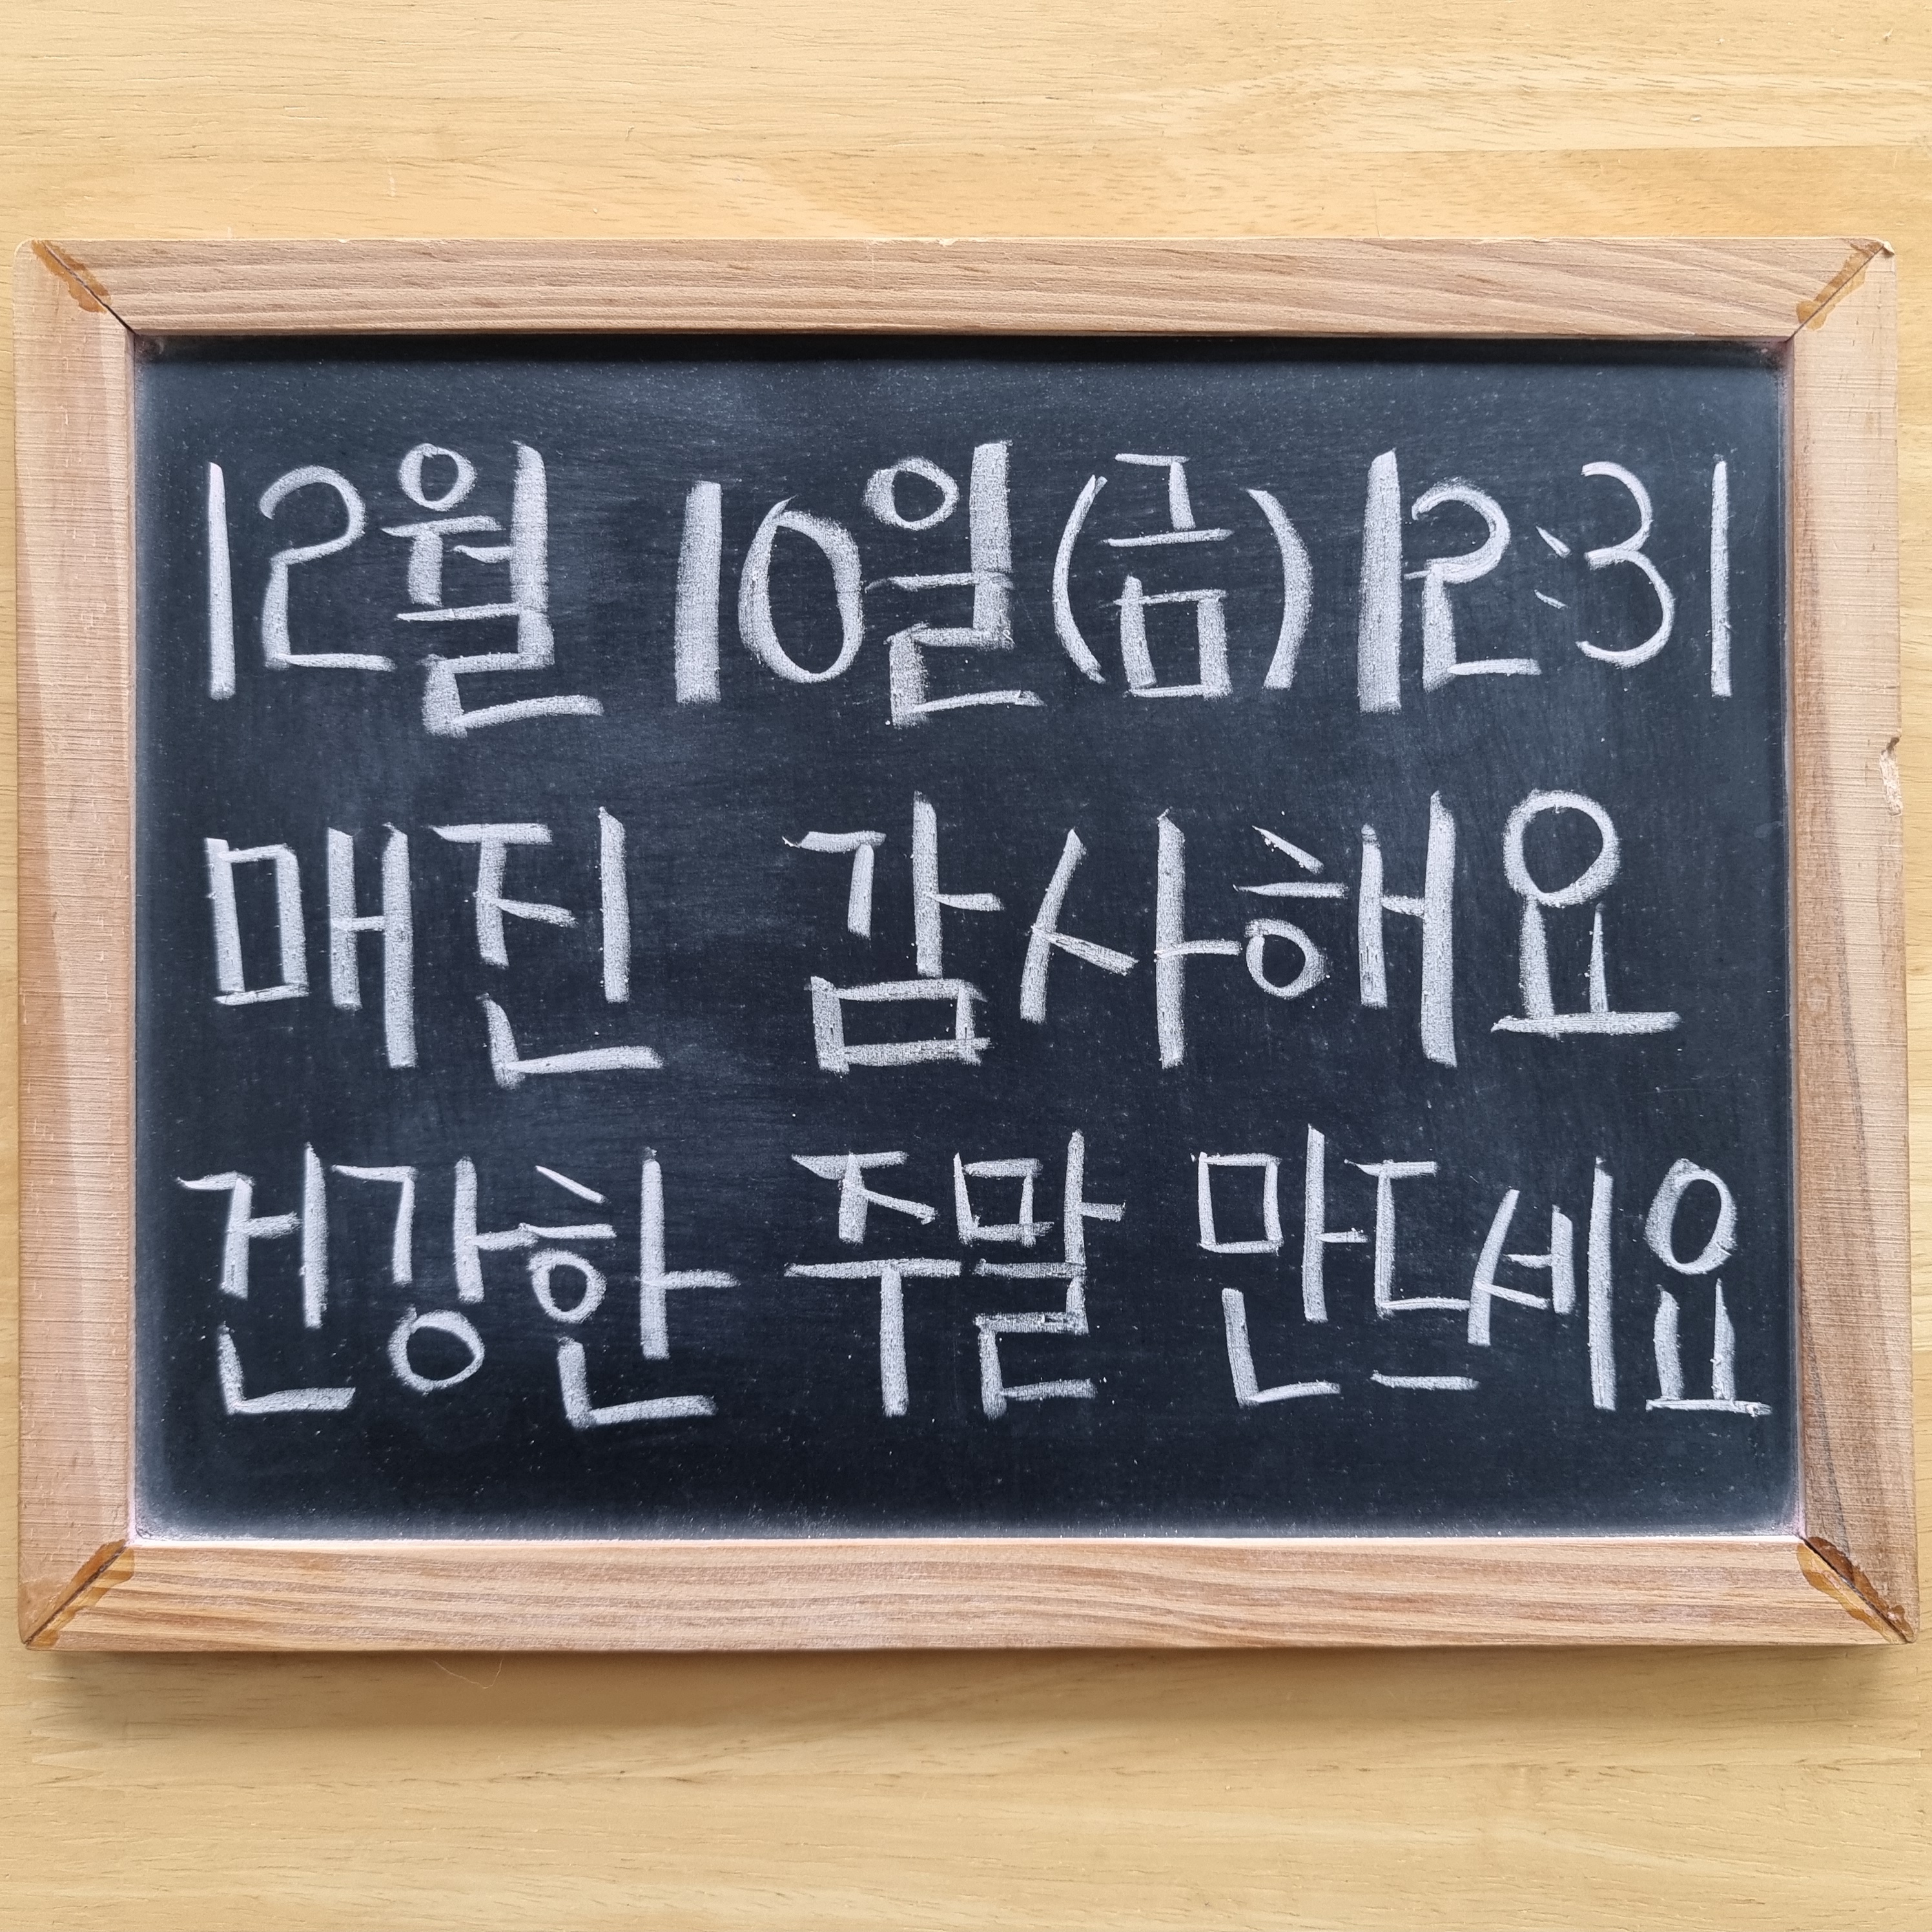 12월 10일(금) 12:31
매진 감사해요
건강한 주말 만드세요